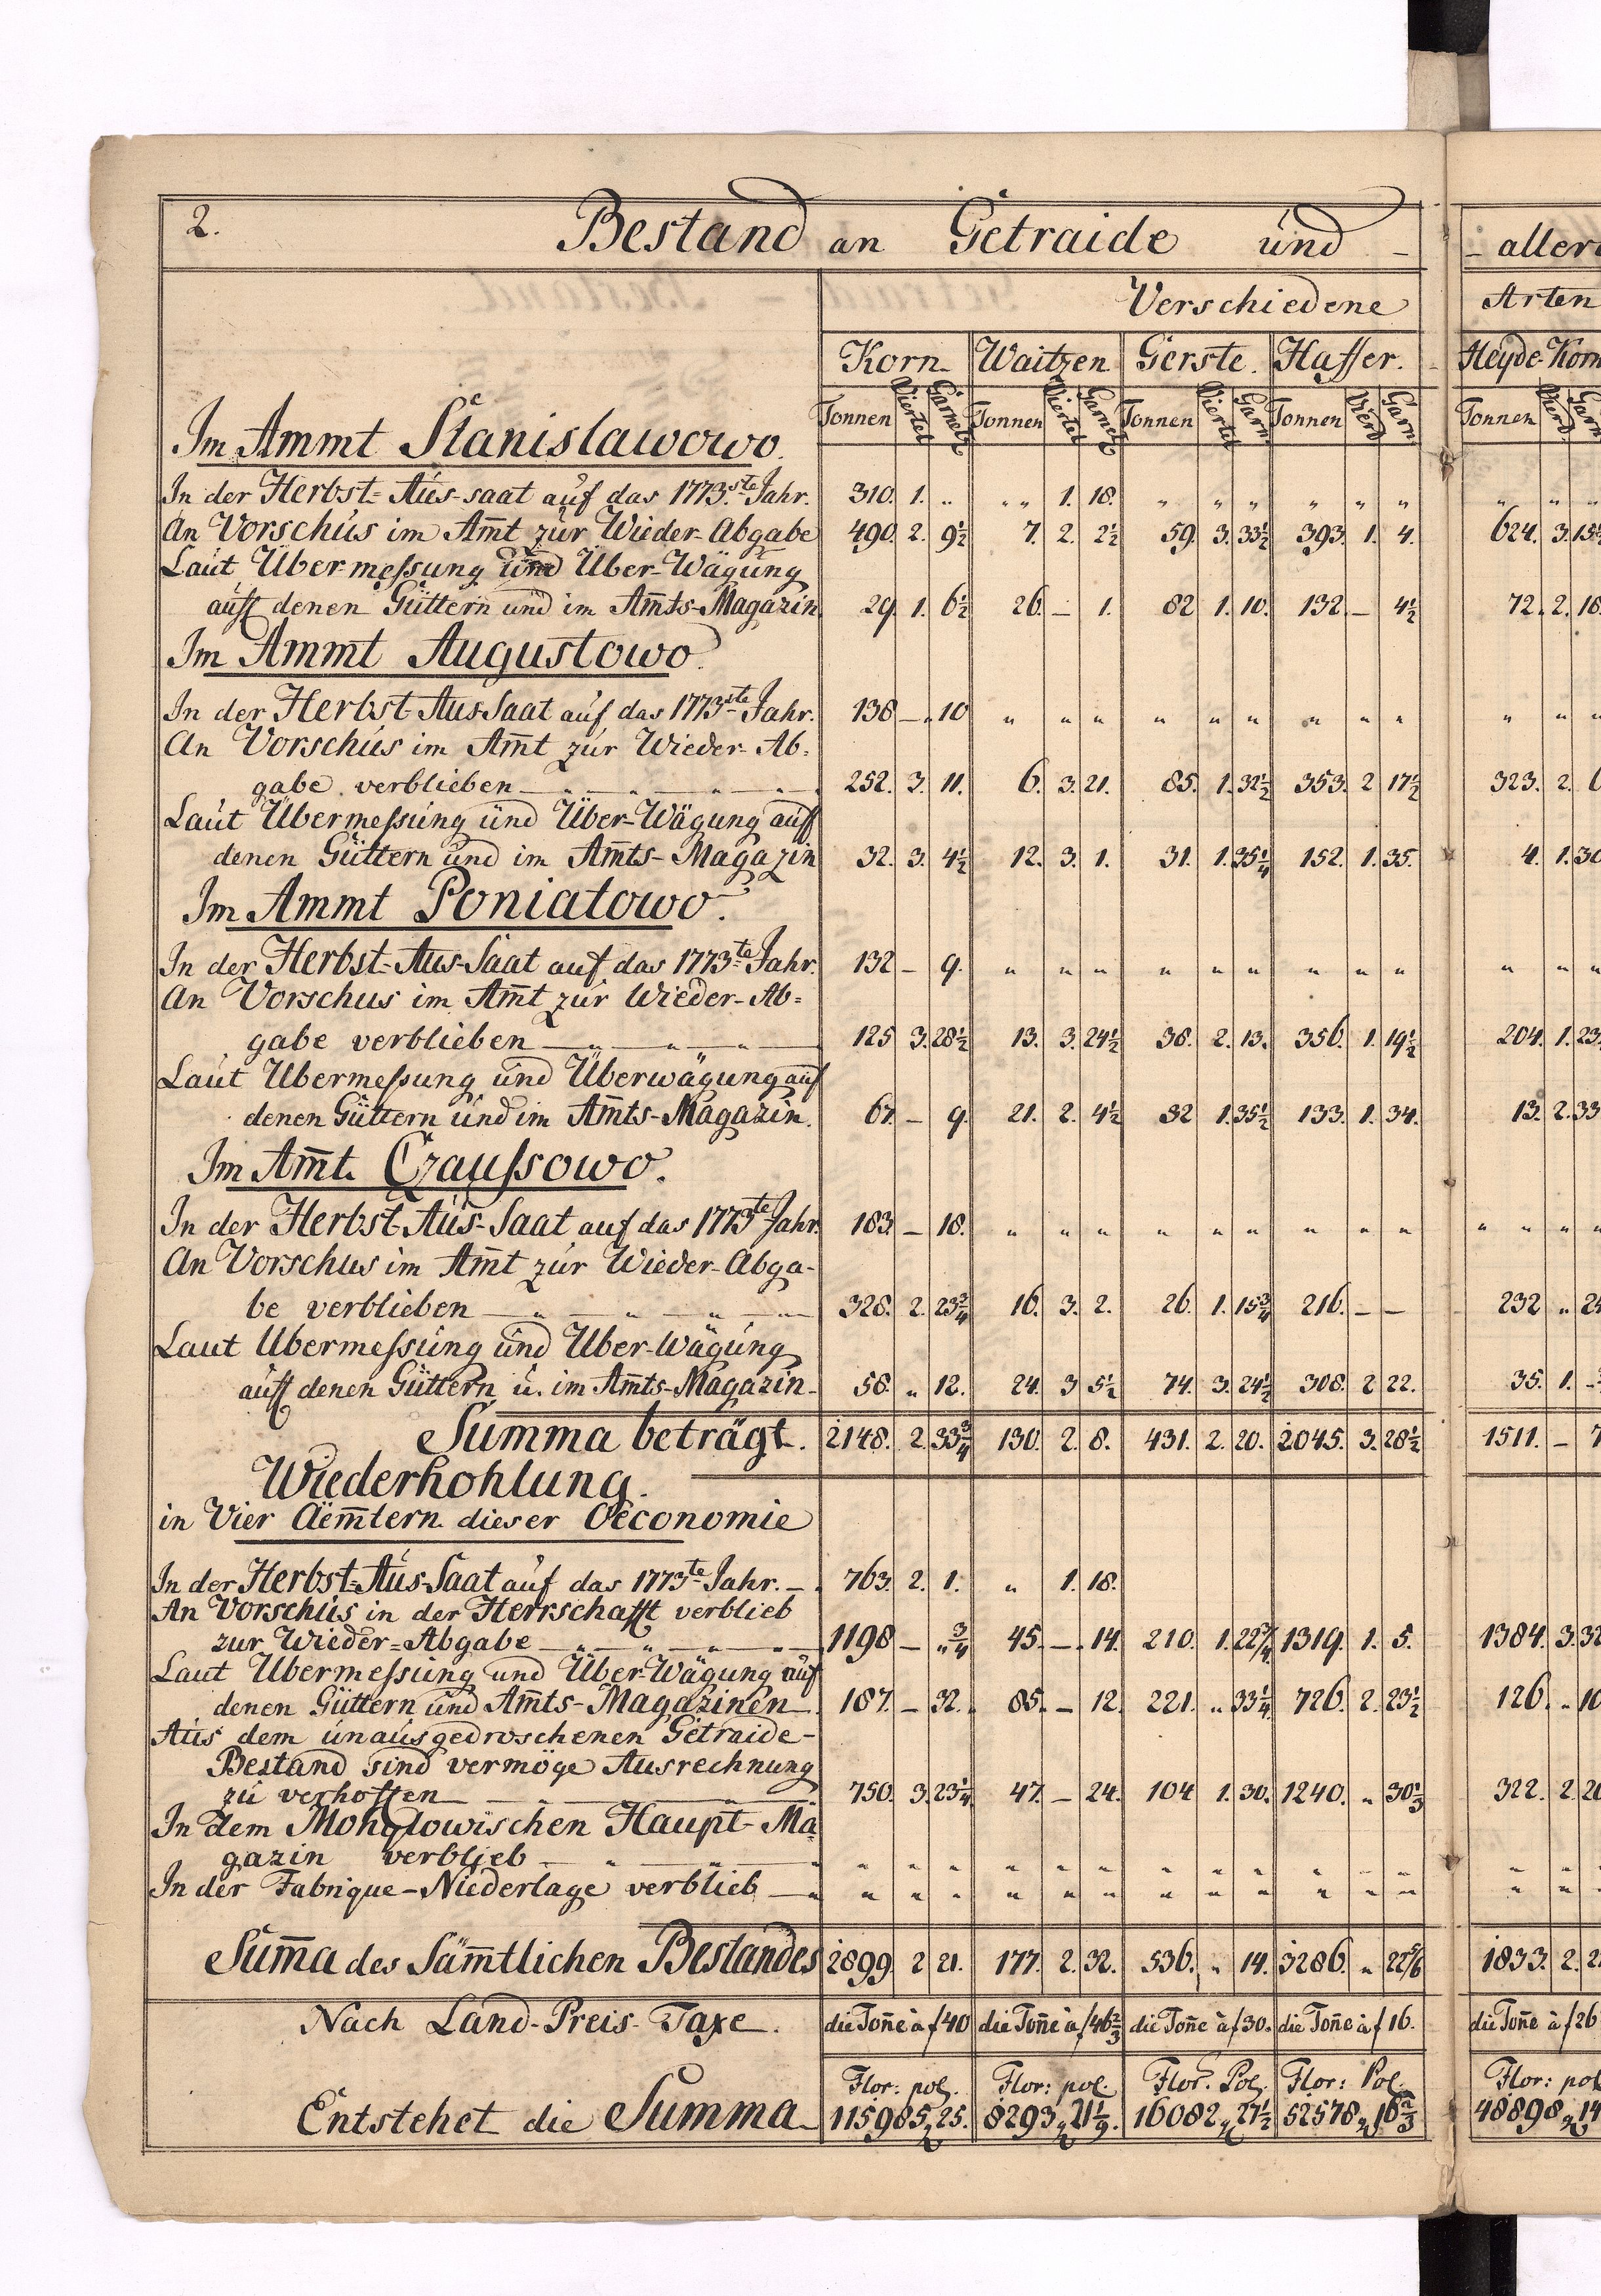 2. Bestand an Getraide und - - allerd
Verschiedene Arten
Korn. Waitzen Gerste. Haffer. Heyde-Korn
Tonnen Viertel Garnetz Tonnen Viertel Garnetz Tonnen Viertel Garn Tonnen Vierd Garn Tonnen Vierd Garn
Im Ammt Stanislawowo.
In der Herbst=Aus-saat auf das 1773.ste Jahr. 310. 1. „ „ „ 1. 18. „ „ „ „ „ „ „ „ „
An Vorschus im Am̅t zur Wieder-Abgabe 490. 2. 9½ 7. 2. 2½ 59. 3. 33½ 393. 1. 4. 624. 3. 15½
Laut Über-messung und Über-Wägung
auff denen Güttern und im Am̅ts-Magazin 29. 1. 6½ 26. – 1. 82 1. 10. 132. – 4½ 72. 2. 18.
Im Ammt Augustowo.
In der Herbst-Aus-Saat auf das 1773ste Jahr. 138 – „ 10 „ „ „ „ „ „ „ „ „ „ „ „
An Vorschus im Am̅t zur Wieder-Ab=
gabe verblieben — „ — „ — „ — „ 252. 3. 11. 6. 3. 21. 85. 1. 32½ 353. 2 17½ 323. 2. 6
Laut Übermessung und Über-Wägung auff
denen Güttern und im Am̅ts-Magazin 32. 3. 4½ 12. 3. 1. 31. 1. 35¼ 152. 1. 35. 4. 1. 30
Im Ammt Poniatowo.
In der Herbst=Aus-Saat auf das 1773te Jahr. 132 – 9. „ „ „ „ „ „ „ „ „ „ „ „
An Vorschus im Am̅t zur Wieder-Ab=
gabe verblieben — „ — „ — „ — 125 3. 28½ 13. 3. 24½ 38. 2. 13. 356. 1. 19½ 204. 1. 23.
Laut Übermessung und Überwägung auf
denen Güttern und im Am̅ts-Magazin. 67. – 9. 21. 2. 4½ 32 1. 35½ 133. 1. 34. 13. 2. 33
Im Am̅t. Czaussowo.
In der Herbst-Aus-Saat auf das 1773te Jahr. 183. – 18. „ „ „ „ „ „ „ „ „ „ „ „ „
An Vorschus im Am̅t zur Wieder-Abga-
be verblieben — „ — „ — „ — „ — 328. 2. 23¾ 16. 3. 2. 26. 1. 15¾ 216. – – 232 „ 24
Laut Übermessung und Über-Wägung
auff denen Güttern u. im Am̅ts-Magazin - 58. „ 12. 24. 3 5½ 74. 3. 24½ 308. 2 22. 35. 1. -
Summa beträgt. 2148. 2. 33¾ 130. 2. 8. 431. 2. 20. 2045. 3. 28½ 1511. – 7
Wiederhohlung.
in Vier Aem̅tern dieser Oeconomie
In der Herbst=Aus-Saat auf das 1773te Jahr. – . 763. 2. 1. „ 1. 18.
An Vorschus in der Herrschafft verblieb
zur Wieder=Abgabe — „ — „ — „ — 1198 – „¾ 45. – . 14. 210. 1. 22¾ 1319. 1. 5. 1384. 3. 32
Laut Übermessung und Über-Wägung auf
denen Güttern und Am̅ts-Magazinen 187. – 32. 85. – 12. 221. „ 33¼ 726. 2. 23½ 126. „ 10
Aus dem unausgedroschenen Getraide-
Bestand sind vermöge Ausrechnung
zu verhoffen — „ — „ — 750. 3. 23¼ 47. – 24. 104 1. 30. 1240. „ 30⅓ 322. 2. 20
In dem Mohylowischen Haupt-Ma-
gazin verblieb — „ — „ — „ „ „ „ „ „ „ „ „ „ „ „ „ „ „
In der Fabrique-Niederlage verblieb — „ „ „ „ „ „ „ „ „ „ „ „ „ „ „
Sum̅a des Säm̅tlichen Bestandes 2899. 2 21. 177. 2. 32. 536. „ 14. 3286. „ 22⅚ 1833. 2. 2
Nach Land-Preis-Taxe. die Ton̅e à f 40 die Ton̅e à f 46⅔ die Ton̅e à f 30. die Ton̅e à f 16. die Ton̅e à f 26
Flor: pol. Flor: pol. Flor. Pol. Flor: Pol. Flor: pol
Entstehet die Summa 115985 „ 25. 8293 „ 21⅑. 16082 „ 27½ 52578 „ 16⅔ 48898 „ 14